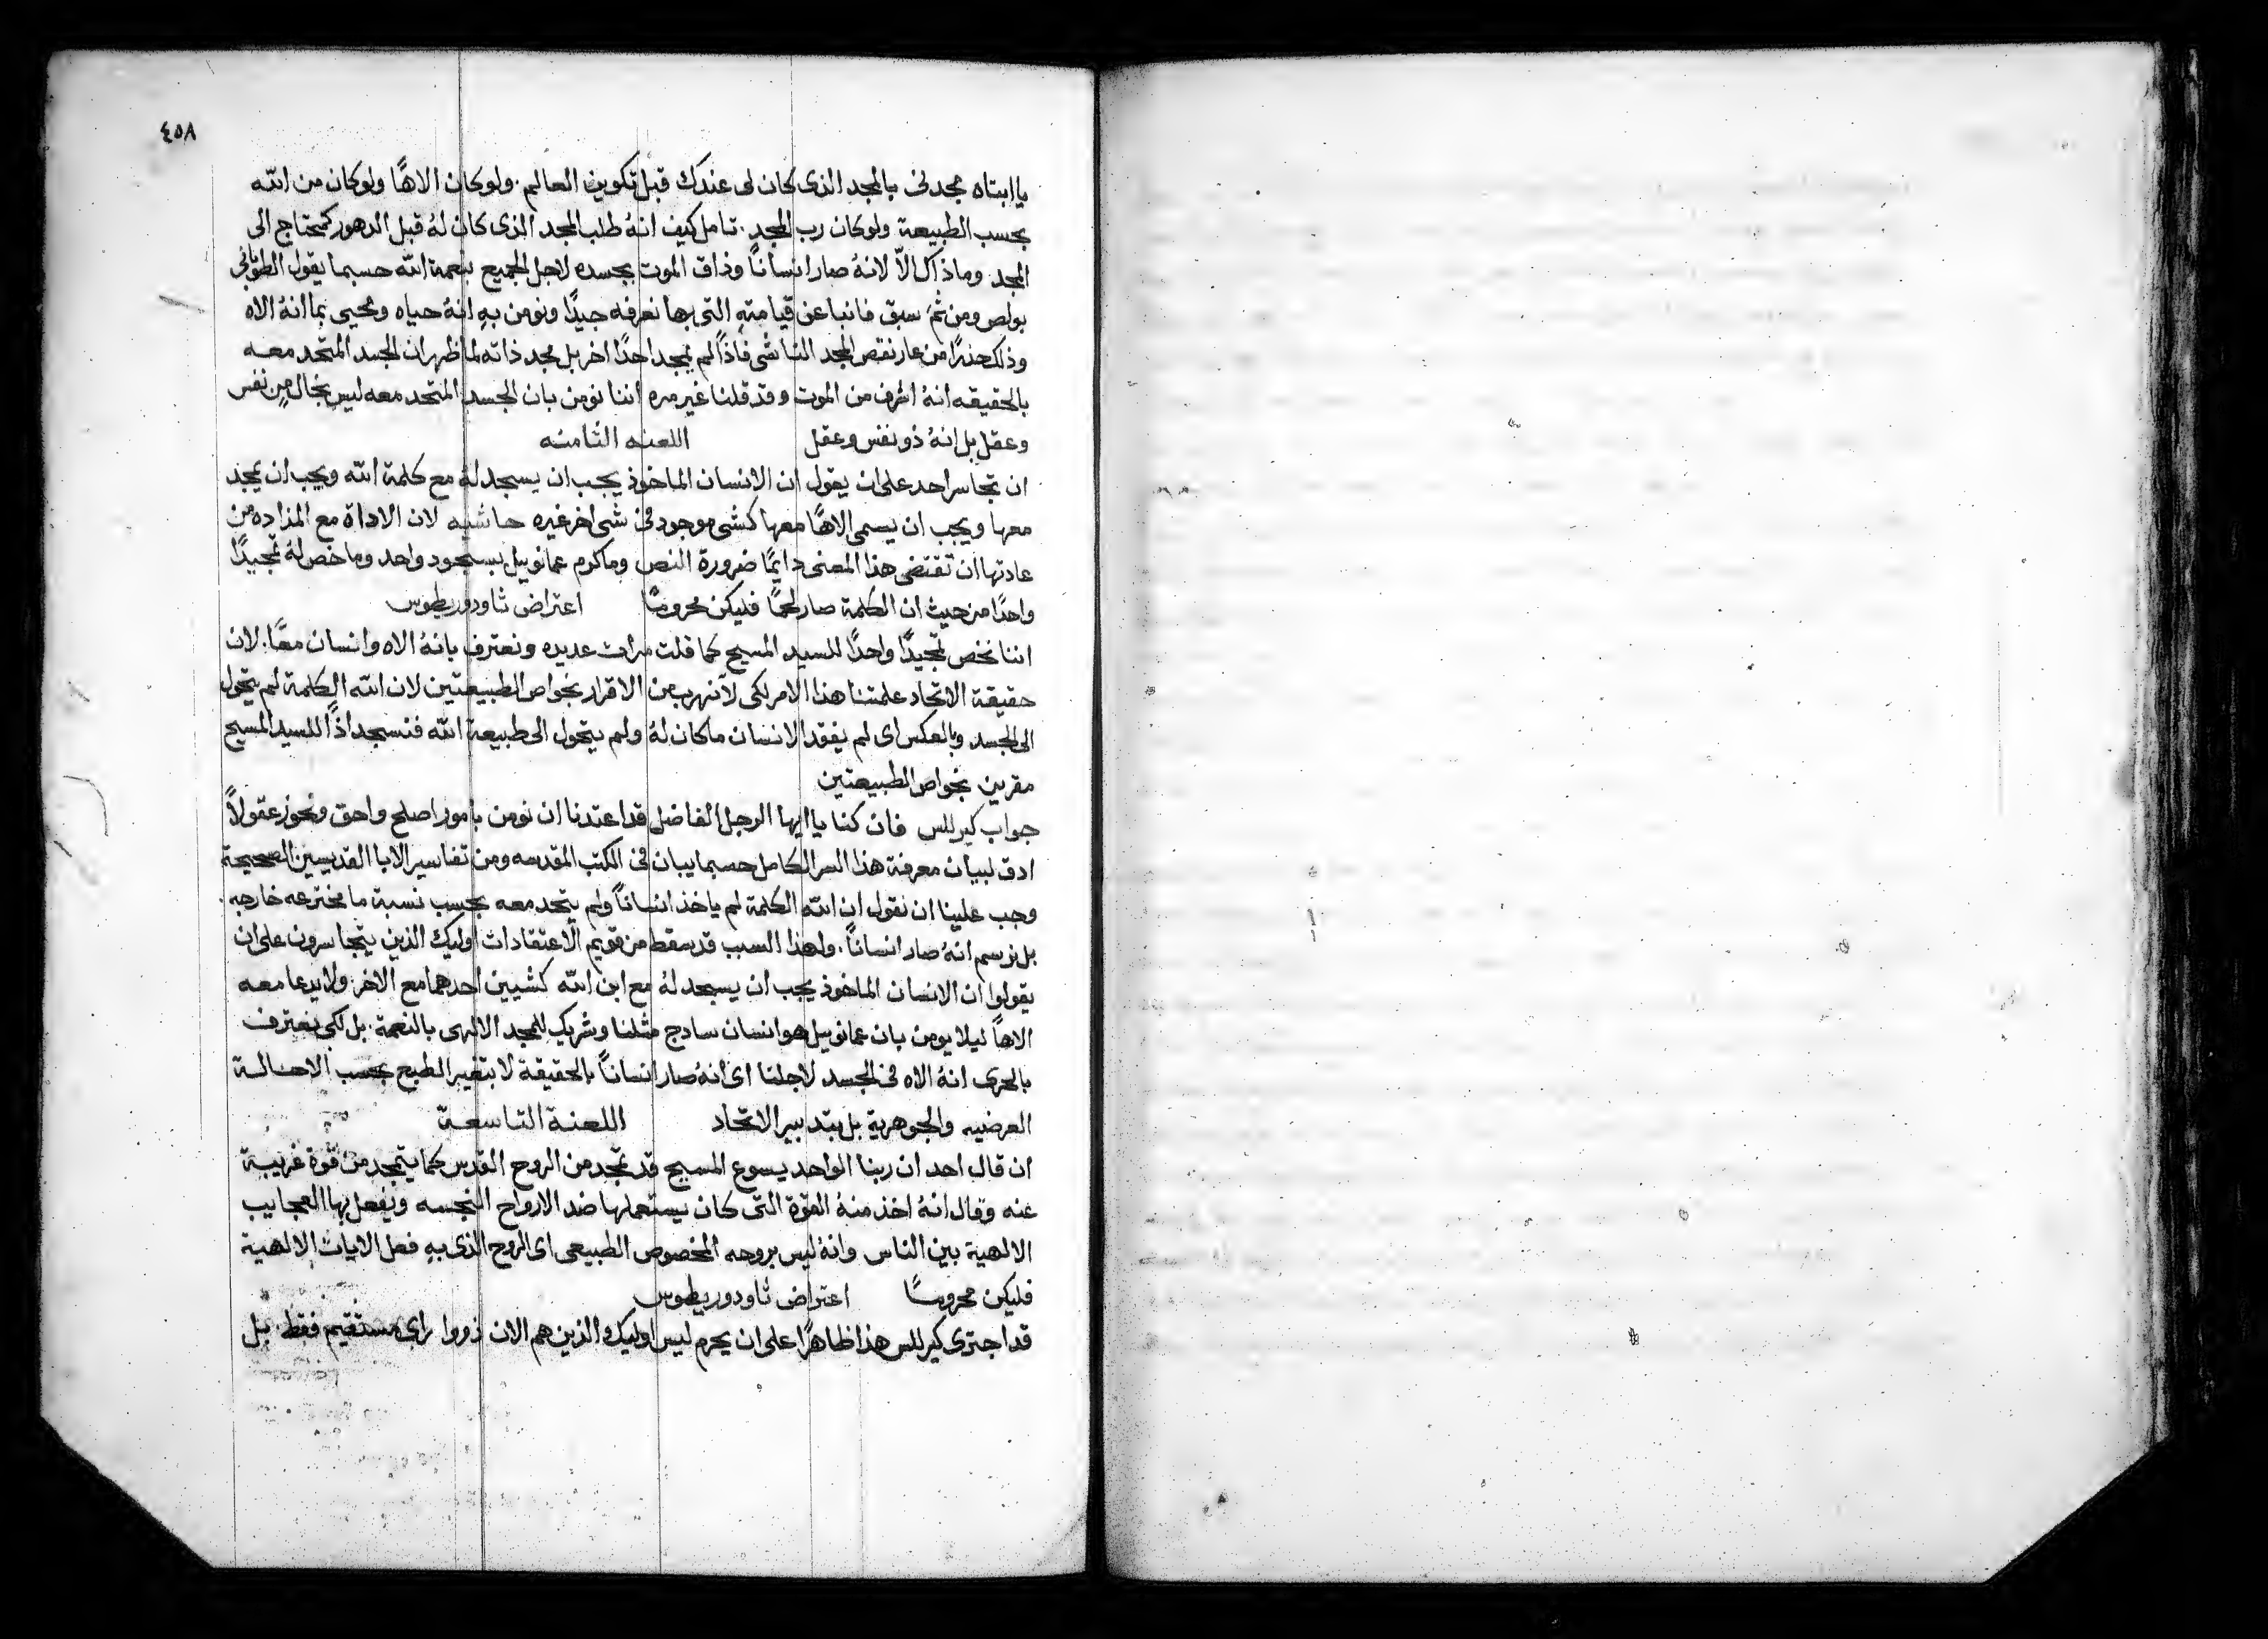 ٤٥٨
يا ابتاه مجدنى بالمجد الذى كان لى عندك قبل تكوين العالم. ولو كان الاهًا ولو كان من الله
بحسب الطبيعة ولو كان رب المجد. تامل كيف انهُ طلب المجد الذى كان لهُ قبل الدهور كمحتاج الى
المجد وماذاك الاّ لانهُ صار انسانًا وذاق الموت بجسده لاجل الجميع بنعمة الله حسبما يقول الطوبانى
بولص ومن ثمَ سبق فانبا عن قيامتهِ التى بها نعرفه جيدًا ونومن بهِ انهُ حياه ومحيى بما انهُ الاه
وذلك حذرًا من عار نقص المجد الناشى فاذًا لم يمجد احدًا اخر بل مجد ذاته لما ظهر ان الجسد المتحد معه
بالحقيقه انهُ اشرف من الموت وقد قلنا غير مره اننا نومن بان الجسد المتحد معه ليس بخال من نفس
وعقل بل انهُ ذو نفس وعقل اللعنه الثامنه
ان تجاسر احد على ان يقول ان الانسان الماخوذ يجب ان يسجد لهُ مع كلمة الله ويجب ان يمجد
معها ويجب ان يسمى الاهًا معها كشى موجود فى شى اخر غيره حاشيه لان الاداة مع المزاده من
عادتها ان تقتضى هذا المعنى دايمًا ضرورة النص وما كرم عمانوييل بسجود واحد وما خص لهُ تمجيدًا
واحدًا من حيث ان الكلمة صار لحمًا فليكن محرومًا اعتراض ثاودوريطوس
اننا نخص تمجيدًا واحدًا للسيد المسيح كما قلت مرات عديده ونعترف بانهُ الاه وانسان معًا. لان
حقيقة الاتحاد علمتنا هذا الامر لكى لا نهرب من الاقرار بخواص الطبيعتين لان الله الكلمة لم يتحول
الى الجسد وبالعكس اى لم يفقد الانسان ما كان لهُ ولم يتحول الى طبيعة الله فنسجد اذًا للسيد المسيح
مقرين بخواص الطبيعتين
جواب كيرللس فان كنا يا ايها الرجل الفاضل قد اعتدنا ان نومن بامور اصلح واحق ونحوز عقولاً
ادق لبيان معرفة هذا السر الكامل حسبما يبان فى الكتب المقدسه ومن تفاسير الابا القديسين الصحيحة
وجب علينا ان نقول ان الله الكلمة لم ياخذ انسانًا ولم يتحد معه بحسب نسبة ما مخترعه خارجه.
بل نرسم انهُ صار انسانًا. ولهذا السبب قد سقط من قويم الاعتقادات اوليك الذين يتجاسرون على ان
يقولوا ان الانسان الماخوذ يجب ان يسجد لهُ مع ابن الله كشيين احدهما مع الاخر ولا يدعا معه
الاهًا ليلا يومن بان عمانوييل هو انسان سادج مثلنا وشريك للمجد الالهى بالنعمة. بل لكى نعترف
بالحرى انهُ الاه فى الجسد لاجلنا اى انهُ صار انسانًا بالحقيقة لا بتغير الطبع بحسب الاحالة
العرضيه والجوهرية بل بتدبير الاتحاد اللعنة التاسعة
ان قال احد ان ربنا الواحد يسوع المسيح قد تمجد من الروح القدس كما يتمجد من قوة غريبة
عنه وقال انهُ اخذ منهُ القوة التى كان يستعملها ضد الارواح النجسه ويفعل بها العجايب
الالهية بين الناس وانهُ ليس بروحه المخصوص الطبيعى اى الروح الذى بهِ فعل الايات الالهية
فليكن محرومًا اعتراض ثاودوريطوس
قد اجترى كيرللس هذا ظاهرًا على ان يحرم ليس اوليك الذين هم الان ذووا راى مستقيم فقط بل